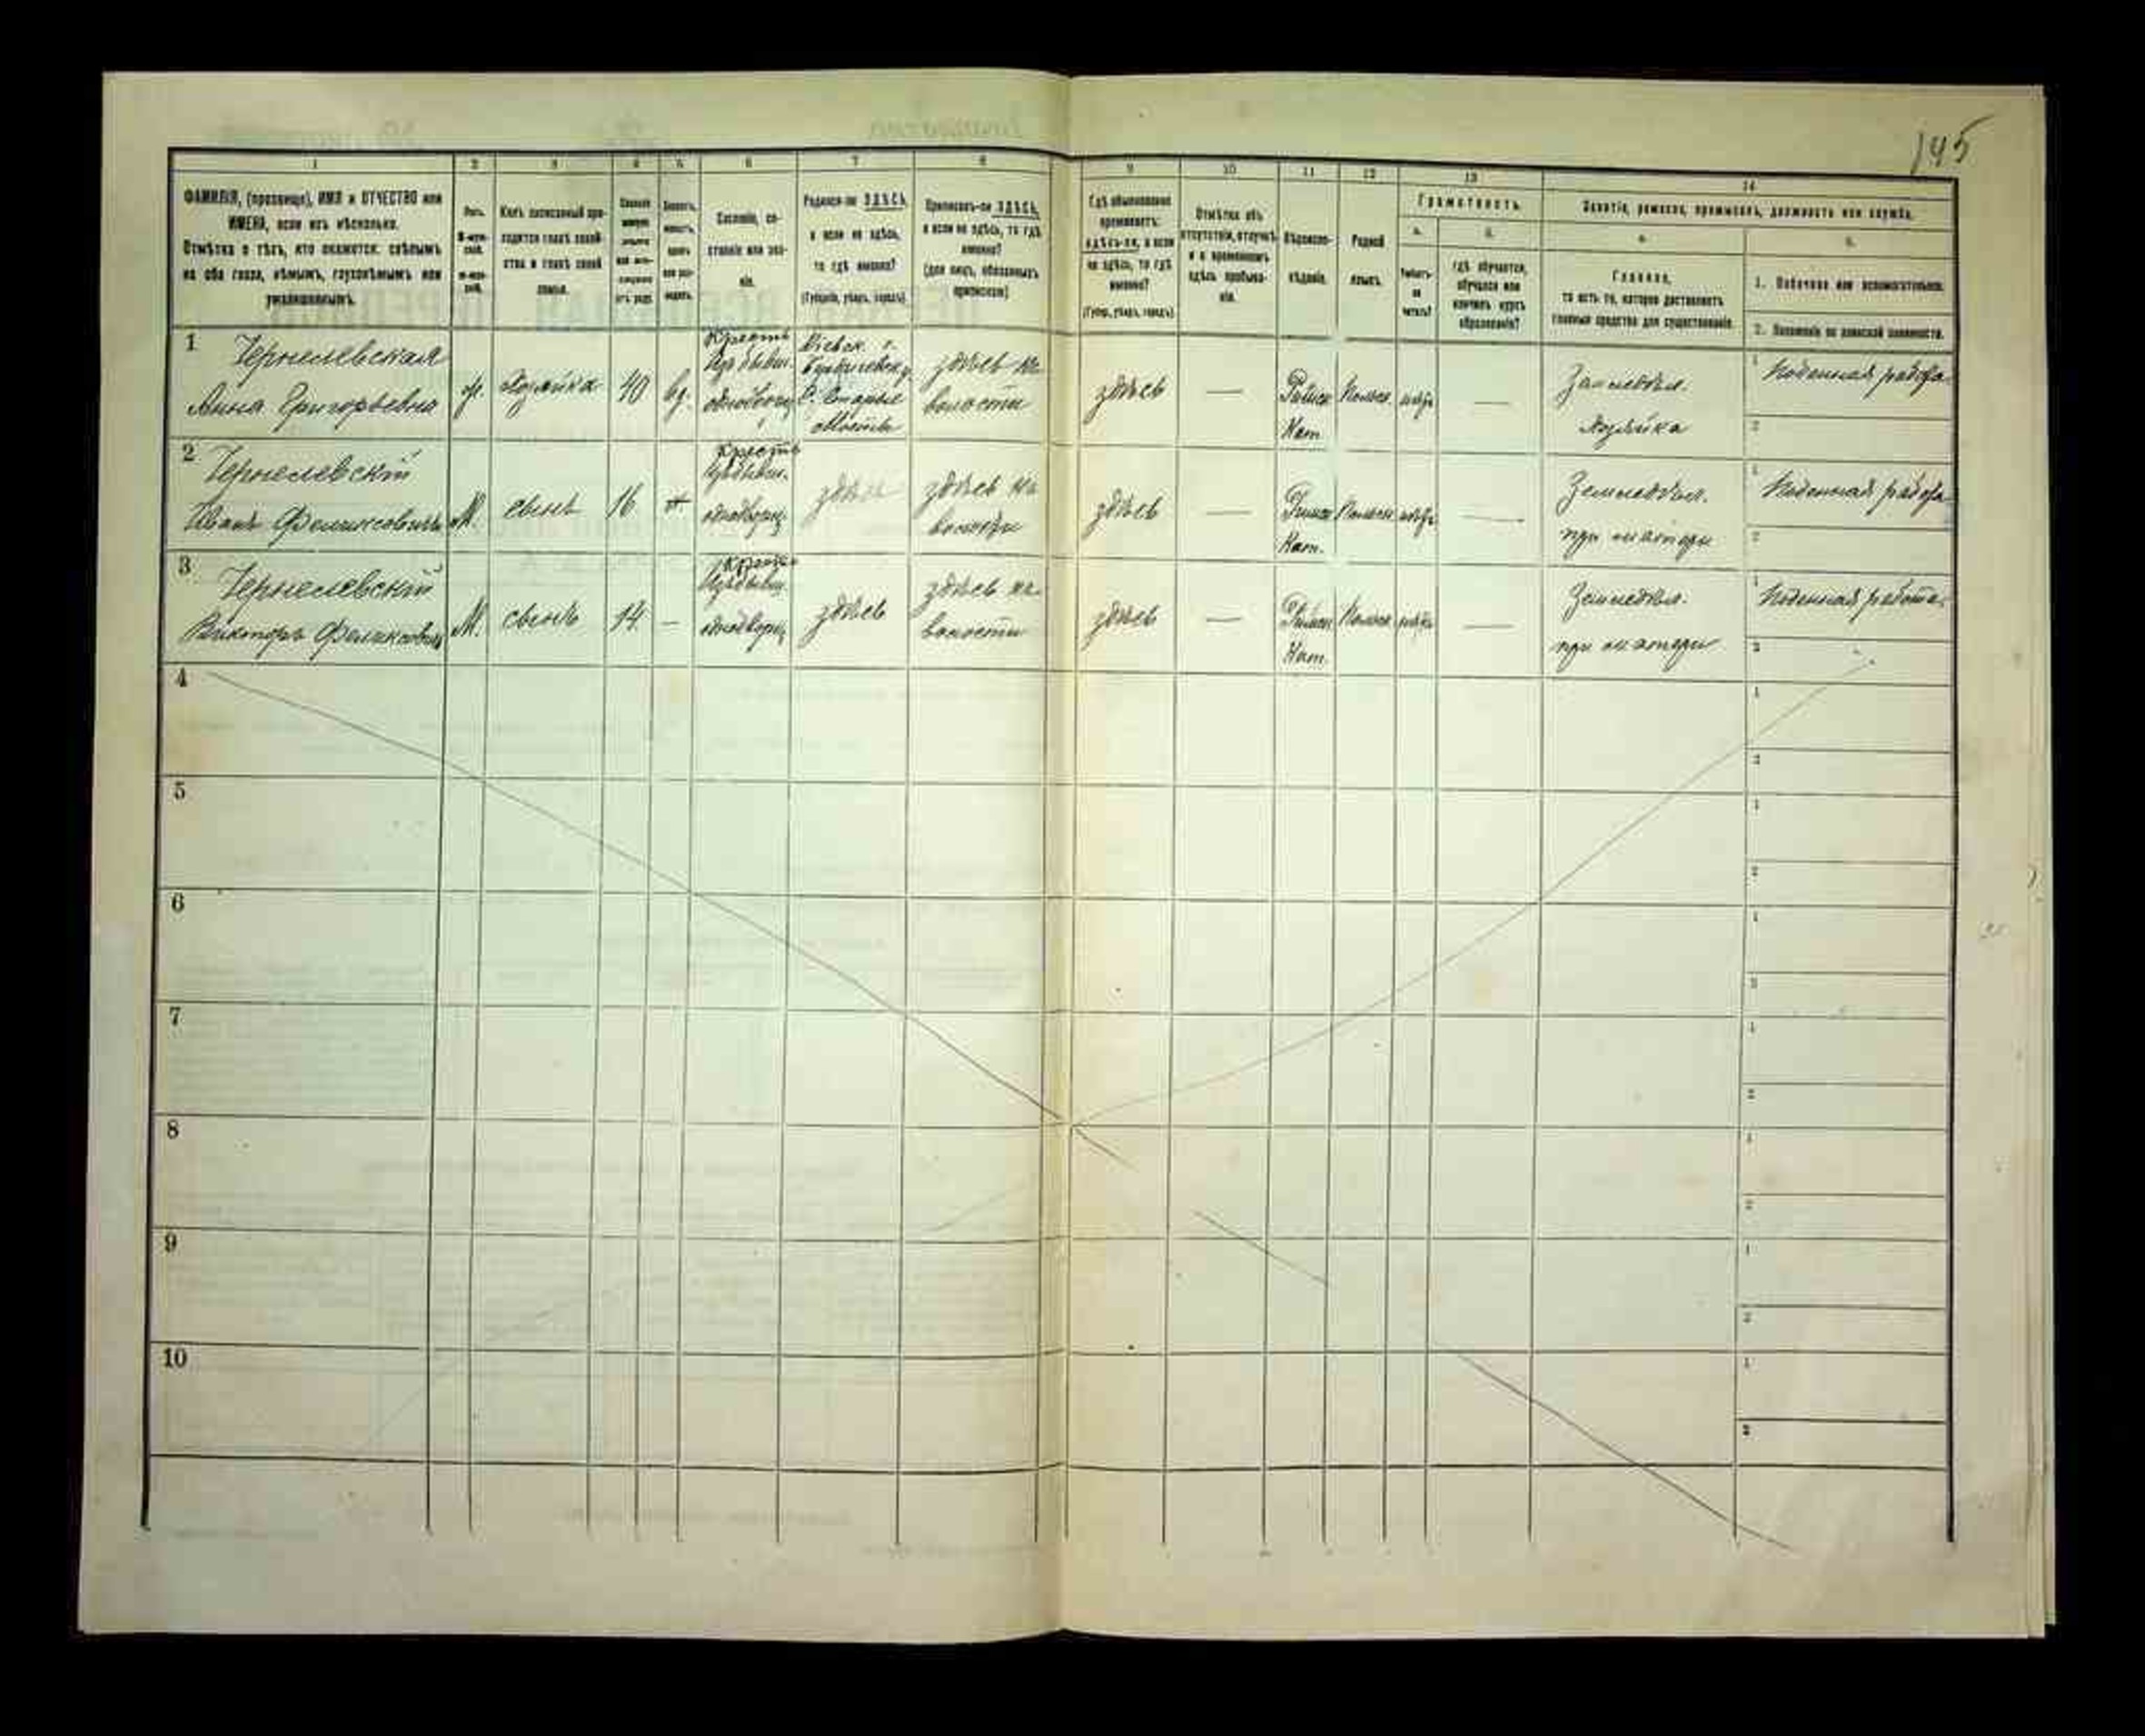 145
1 2 3 4 5 6 7 8 9 10 11 12 13 14
ФАМИЛІЯ, (прозвище), ИМЯ и ОТЧЕСТВО или
ИМЕНА, если ихъ нѣсколько.
Отмѣтка о тѣхъ, кто окажется: слѣпымъ
на оба глаза, нѣмымъ, глухонѣмымъ или
умалишеннымъ.
Полъ.
М-муж-
ской.
Ж-жен-
скій.
Какъ записанный при-
ходится главѣ хозяй-
ства и главѣ своей
семьи.
Сословіе, со-
стояніе или зва-
ніе.
Родился-ли ЗДѢСЬ,
а если не здѣсь,
то гдѣ именно?
(Губернія, уѣздъ, городъ)
Приписанъ-ли ЗДѢСЬ,
а если не здѣсь, то гдѣ
именно?
(для лицъ, обязанныхъ
припискою)
Гдѣ обыкновенно
проживаетъ:
здѣсь-ли, а если
не здѣсь, то гдѣ
именно?
(Губер., уѣздъ, городъ)
Отмѣтка объ
отсутствіи, отлучкѣ
и о временномъ
здѣсь пребыва-
ніи.
Вѣроиспо-
вѣданіе.
Родной
языкъ.
Грамотность.
а. б.
Умѣетъ-
ли
читать?
гдѣ обучается,
обучался или
кончилъ курсъ
образованія?
Занятіе, ремесло, промыселъ, должность или служба.
а. б.
Главное,
то есть то, которое доставляетъ
главныя средства для существованія.
1. Побочное или вспомогательное.
2. Положеніе по воинской повинности.
1 Чернелевская
Анна Григорьевна
ж. Хозяйка 40 вд.
Крестъ
Изъ бывш.
однодворц.
Кіевск. г.
С. Старые
здѣсь на
волости
здѣсь — Римск Кат. Польск. нѣтъ —
Земледѣл.
Хозяйка
1 Поденная работа
2
2 Чернелевскій
Иванъ Феликсовичъ
М. сынъ 16
Крестъ
Изъ бывш.
однодворц.
здѣсь
здѣсь на
волости
здѣсь — Римск Кат. Польск нѣтъ —
Земледѣл.
при матери
1 Поденная работа
2
3 Чернелевскій
Викторъ Феликсович
М. сынъ 14 —
Изъ бывш.
однодворц.
здѣсь
здѣсь на
волости
здѣсь — Римск Кат. Польск нѣтъ —
Земледѣл.
при матери
1 Поденная работа.
2
4
1
2
5
1
2
6
1
2
7
1
2
8
1
2
9
1
2
10
1
2